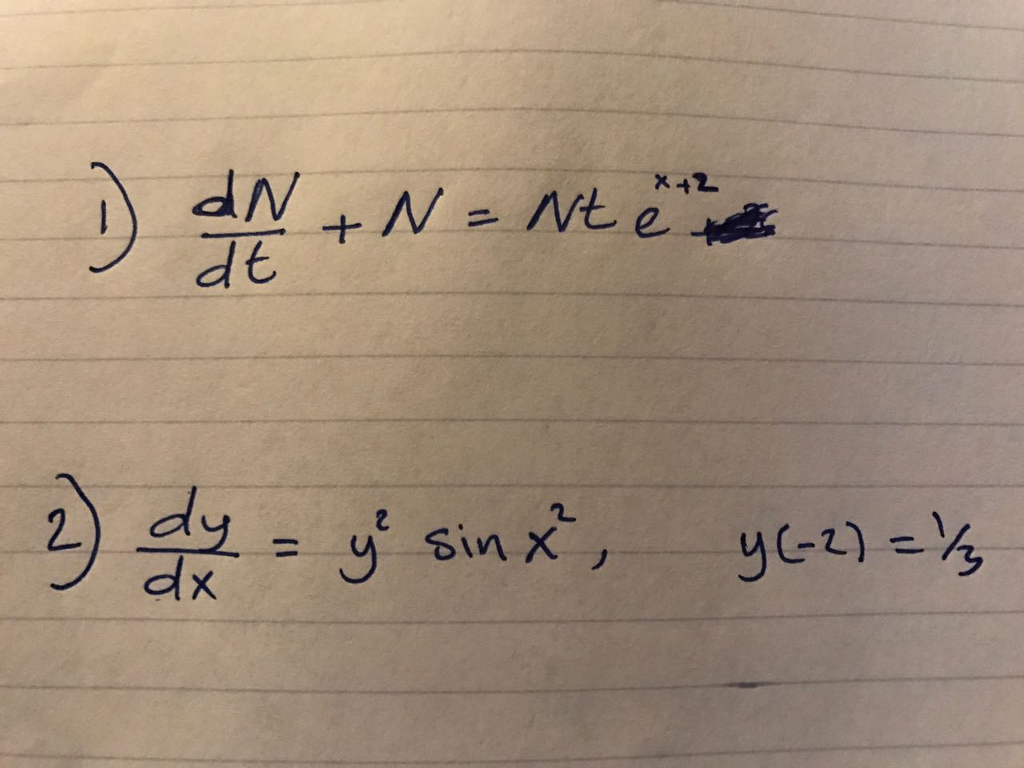 1) dN/dt + N = Nt e^(x+2)
2) dy/dx = y² sin x², y(-2) = 1/3